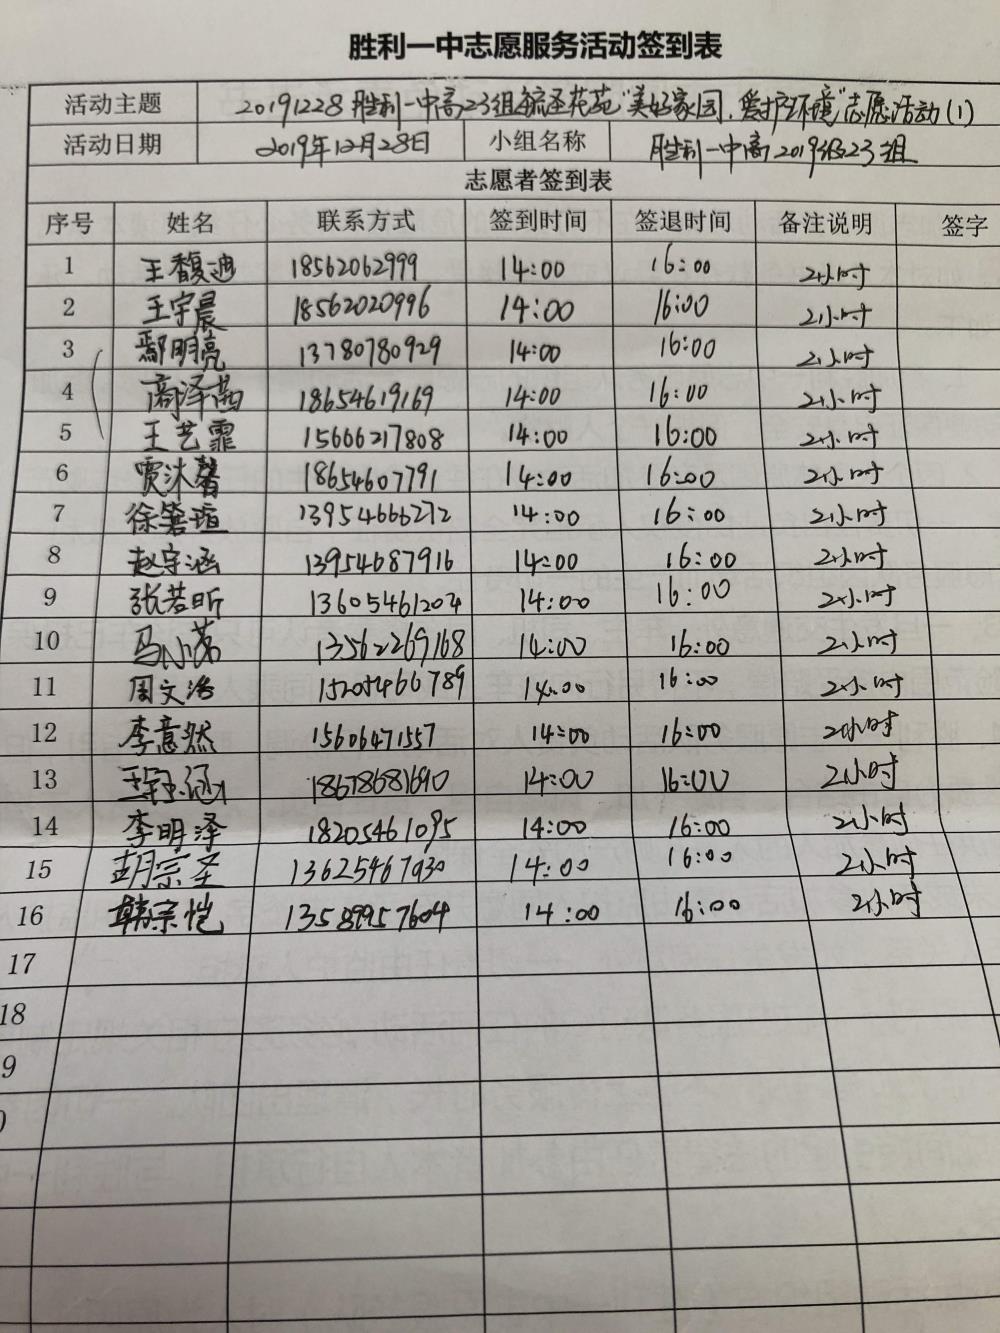 胜利一中志愿服务活动签到表
活动主题 20191228胜利一中高23组毓圣花苑"美好家园,爱护环境"志愿活动(1)
活动日期 2019年12月28日 小组名称 胜利一中高2019级23组
志愿者签到表
序号 姓名 联系方式 签到时间 签退时间 备注说明 签字
1 王馥迪 18562062999 14:00 16:00 2小时
2 王宇晨 18562020996 14:00 16:00 2小时
3 鄢明亮 13780780929 14:00 16:00 2小时
4 商泽茜 18654619169 14:00 16:00 2小时
5 王艺霏 15666217808 14:00 16:00 2小时
6 贾沐馨 18654607791 14:00 16:00 2小时
7 徐箬瑄 13954666272 14:00 16:00 2小时
8 赵宗涵 13954687916 14:00 16:00 2小时
9 张若昕 13605461204 14:00 16:00 2小时
10 马小茗 13562269168 14:00 16:00 2小时
11 周文浩 15205466789 14:00 16:00 2小时
12 李意然 15606471557 14:00 16:00 2小时
13 18678681690 14:00 16:00 2小时
14 李明泽 18205461095 14:00 16:00 2小时
15 胡宗圣 13625467030 14:00 16:00 2小时
16 韩宗恺 13589957604 14:00 16:00 2小时
17
18
9